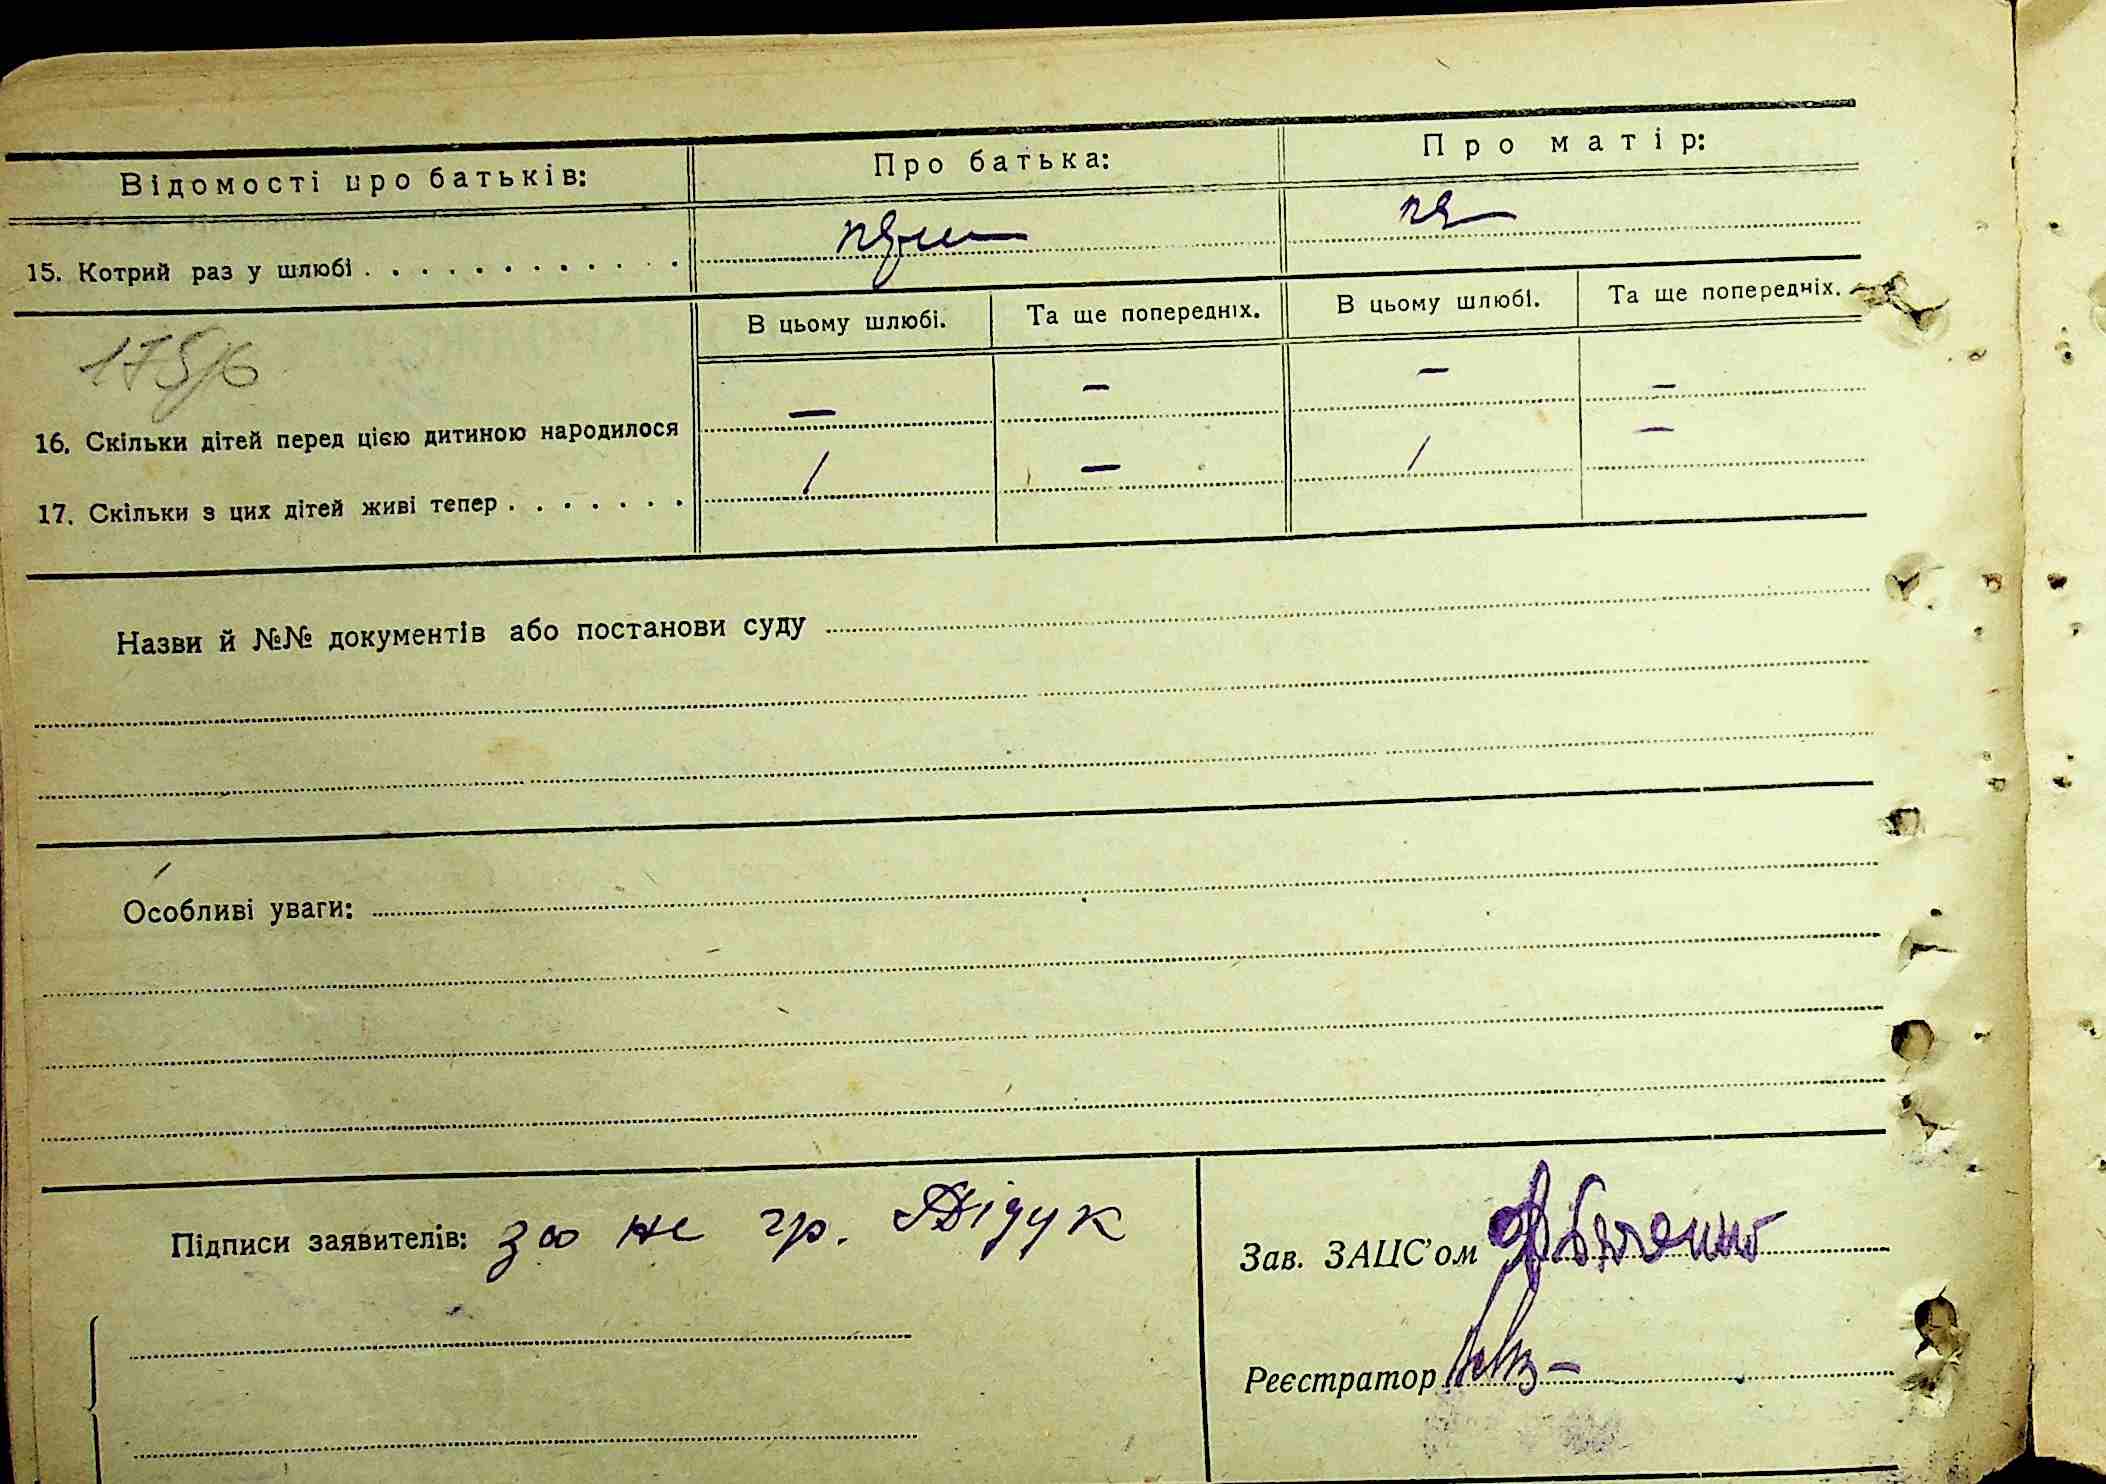 Відомості про батьків:
Про батька:
Про матір:
15. Котрий раз у шлюбі
В цьому шлюбі.
Та ще попередніх.
В цьому шлюбі.
Та ще попередніх.
16. Скільки дітей перед цією дитиною народилося
— — — —
17. Скільки з цих дітей живі тепер
1 — 1 —
Назви й №№ документів або постанови суду
Особливі уваги:
Підписи заявителів: гр. Дідук
Зав. ЗАЦС'ом
Реєстратор